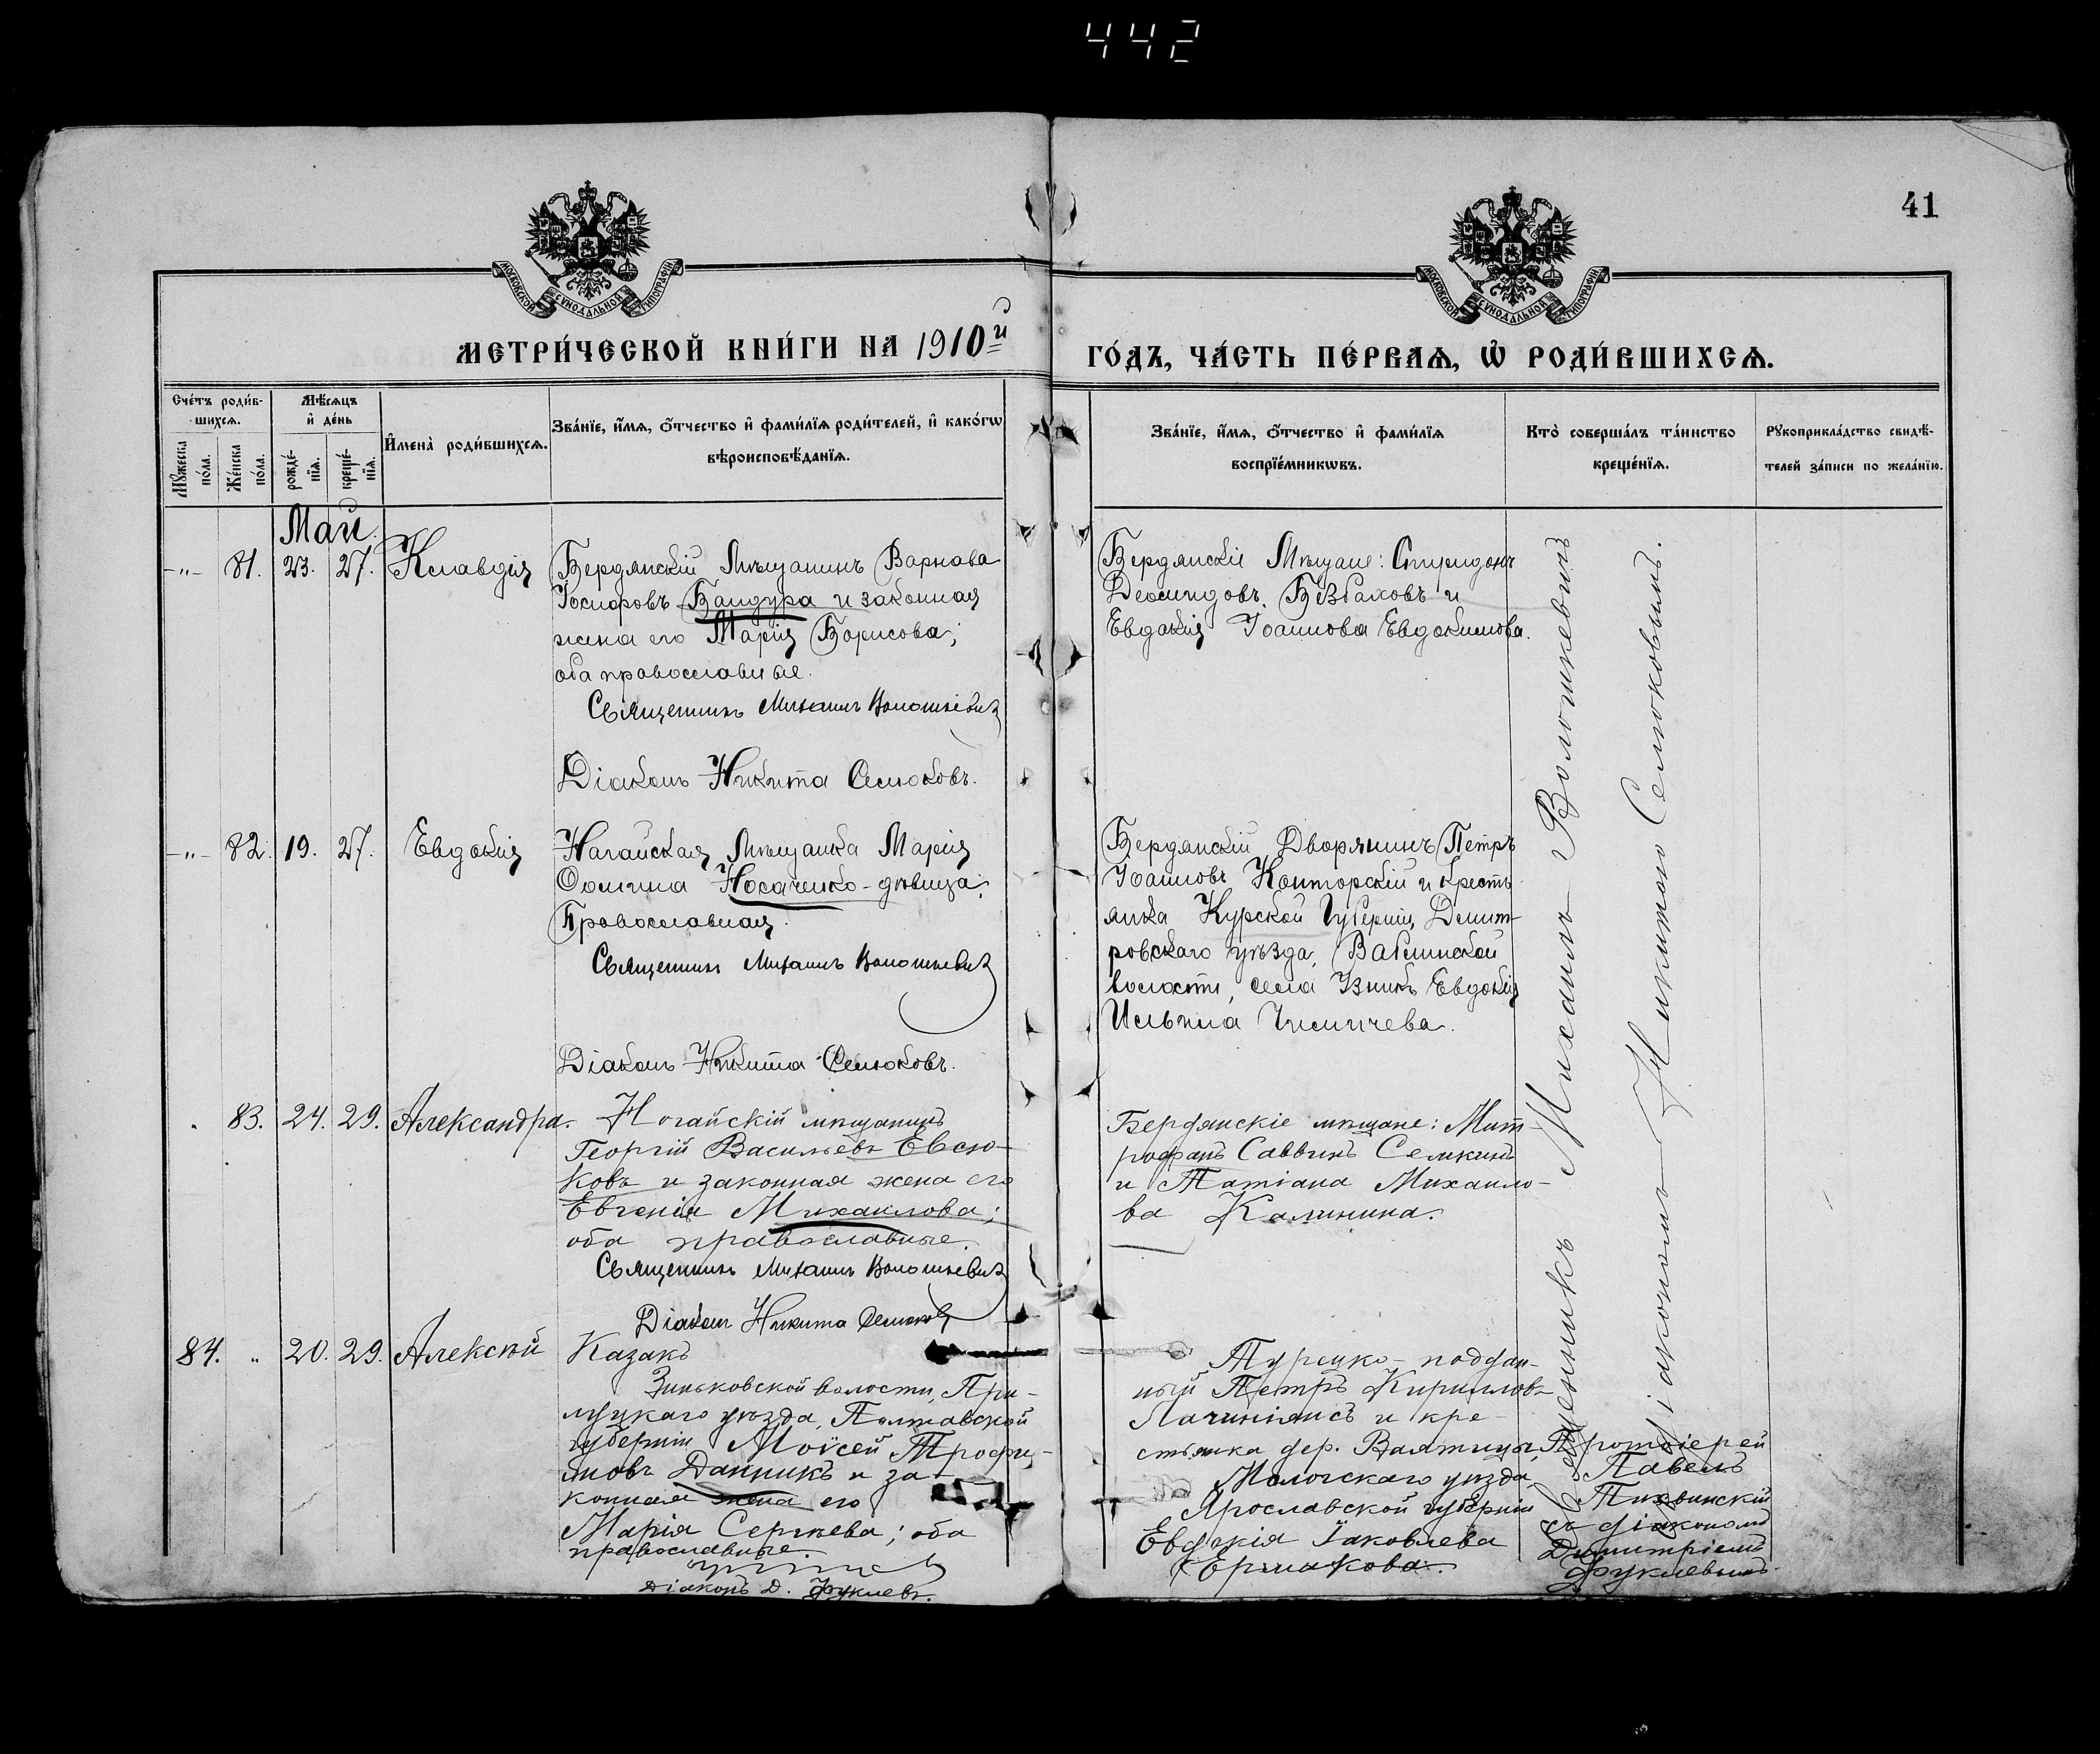 442
41
МОСКОВСКОЙ СѴНОДАЛЬНОЙ ТИПОГРАФІИ
МОСКОВСКОЙ СѴНОДАЛЬНОЙ ТИПОГРАФІИ
МЕТРИ́ЧЕСКОЙ КНИ́ГИ НА 1910й
ГО́ДЪ, ЧА́СТЬ ПЕ́РВАѦ, Ѡ҆ РОДИ́ВШИХСѦ.
Сче́тъ роди́в-
шихсѧ.
Мꙋ́жеска по́ла.
Же́нска по́ла.
Мѣ́сѧцъ
и҆ де́нь
рожде́-
нїѧ.
креще́-
нїѧ.
И҆мена̀ роди́вшихсѧ.
Зва́нїе, и҆́мѧ, ѻ҆́тчество и҆ фами́лїѧ роди́телей, и҆ како́гѡ
вѣроисповѣ́данїѧ.
Зва́нїе, и҆́мѧ, ѻ҆́тчество и҆ фами́лїѧ
воспрїе́мникѡвъ.
Кто̀ соверша́лъ та́инство
креще́нїѧ.
Рꙋкоприкла́дство свидѣ́-
телей за́писи по жела́нїю.
Май.
-"- 81. 23. 27. Клавдія
Бердянскій Мѣщанинъ Варнава
Іосифовъ Бандура и законная
жена его Марія Борисова;
оба православные.
Священникъ Михаилъ Волошкевичъ
Діаконъ Никита Семоковъ.
Бердянскіе Мѣщане: Спиридонъ
и
Евдокія Іоаннова Евдокимова.
-"- 82. 19. 27. Евдокія
Нагайская Мѣщанка Марія
Ѳомина Носаченко - дѣвица;
Православная.
Священникъ Михаилъ Волошкевичъ
Діаконъ Никита Семоковъ.
Бердянскій Дворянинъ Петръ
Іоанновъ Конторскій и кресть-
янка Курской Губерніи, Дмит-
ровскаго уѣзда,
волости, села Евдокія
Ильина
" 83. 24. 29. Александра.
Ногайскій мѣщанинъ
Георгій Васильевъ Евсю-
ковъ и законная жена его
Евгенія Михаилова;
оба православные.
Священникъ Михаилъ Волошкевичъ
Діаконъ Никита Семоковъ
Бердянскіе мѣщане: Мит-
рофанъ Саввинъ Семкинъ
и Татіана Михаило-
ва Калинина.
84. " 20. 29. Алексѣй
Казакъ
Зиньковской волости, При-
луцкаго уѣзда, Полтавской
губерніи Моѵсей Трофи-
мовъ Данникъ и за-
конная жена его
Марія Сергѣева; оба
православные.
Діаконъ Д. Фуклевъ.
Турецко-поддан-
ный Петръ Кирилловъ
и кре-
стьянка дер.
Мологскаго уѣзда,
Ярославской губерніи
Евдокія Іаковлева
Ермакова.
Священникъ Михаилъ Волошкевичъ
Діакономъ Никитою Семоковымъ.
Протоіерей
Павелъ
Тихвинскій
съ діакономъ
Димитріемъ
Фуклевымъ.